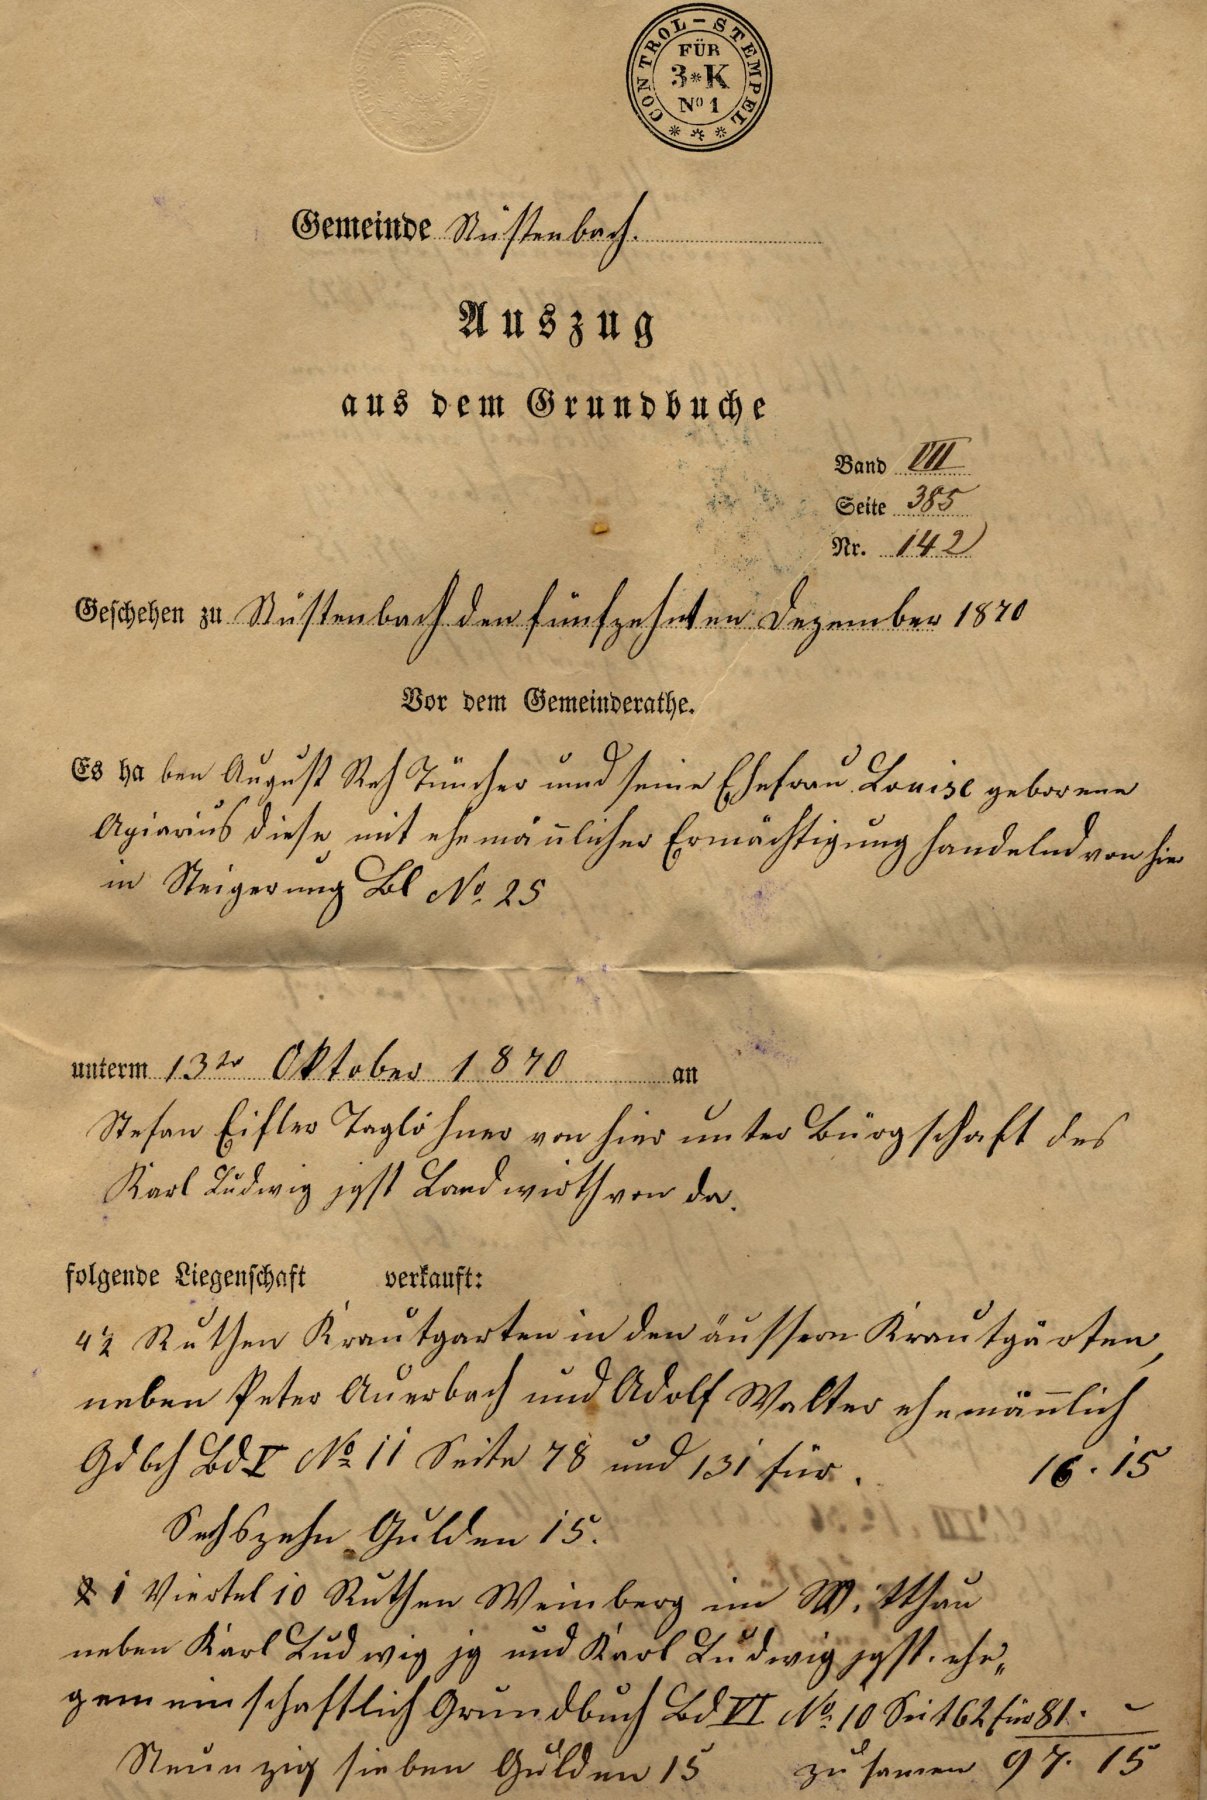 CONTROL-STEMPEL
FÜR
3*K
No 1
Gemeinde Nüstenbach.
Auszug
aus dem Grundbuche
Band VII
Seite 385
Nr. 142
Geschehen zu Nüstenbach den fünfzehnten Dezember 1870
Vor dem Gemeinderathe.
Es haben August Reh Tüncher und seine Ehefrau Louise geborene
Apiarius diese mit ehemännlicher Ermächtigung handelnd von hier
in Steigerung Bl No 25
unterm 13ter Oktober 1870 an
Stefan Eifler Taglöhner von hier unter Bürgschaft des
Karl Ludwig jgst Landwirth von da.
folgende Liegenschaft verkauft:
4½ Ruthen Krautgarten in den äussern Krautgärten,
neben Peter Auerbach und Adolf Walter ehemännlich
Gdbch Bd V No 11 Seite 78 und 131 für. 16. 15
Sechszehn Gulden 15.
1 Viertel 10 Ruthen Weinberg im
neben Karl Ludwig jg und Karl Ludwig jgst. ehe„
gemeinschaftlich Grundbuch Bd VI No 10 Seit 62 für 81. –
Neunzig sieben Gulden 15 zusamen 97. 15